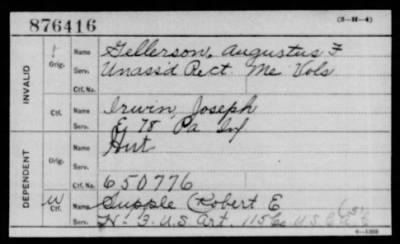 876416 (3-H-4)
Orig. Name Gellerson, Augustus F
Serv. Unass'd Rect. Me Vols
Ctf. No.
INVALID
Ctf. Name Irwin, Joseph
Serv. E, 78 Pa Inf
Orig. Name Hirt
Serv.
DEPENDENT
Ctf. No. 650776
W Ctf. Name Supple (Robert E
Serv. H- 3. U.S. Art.